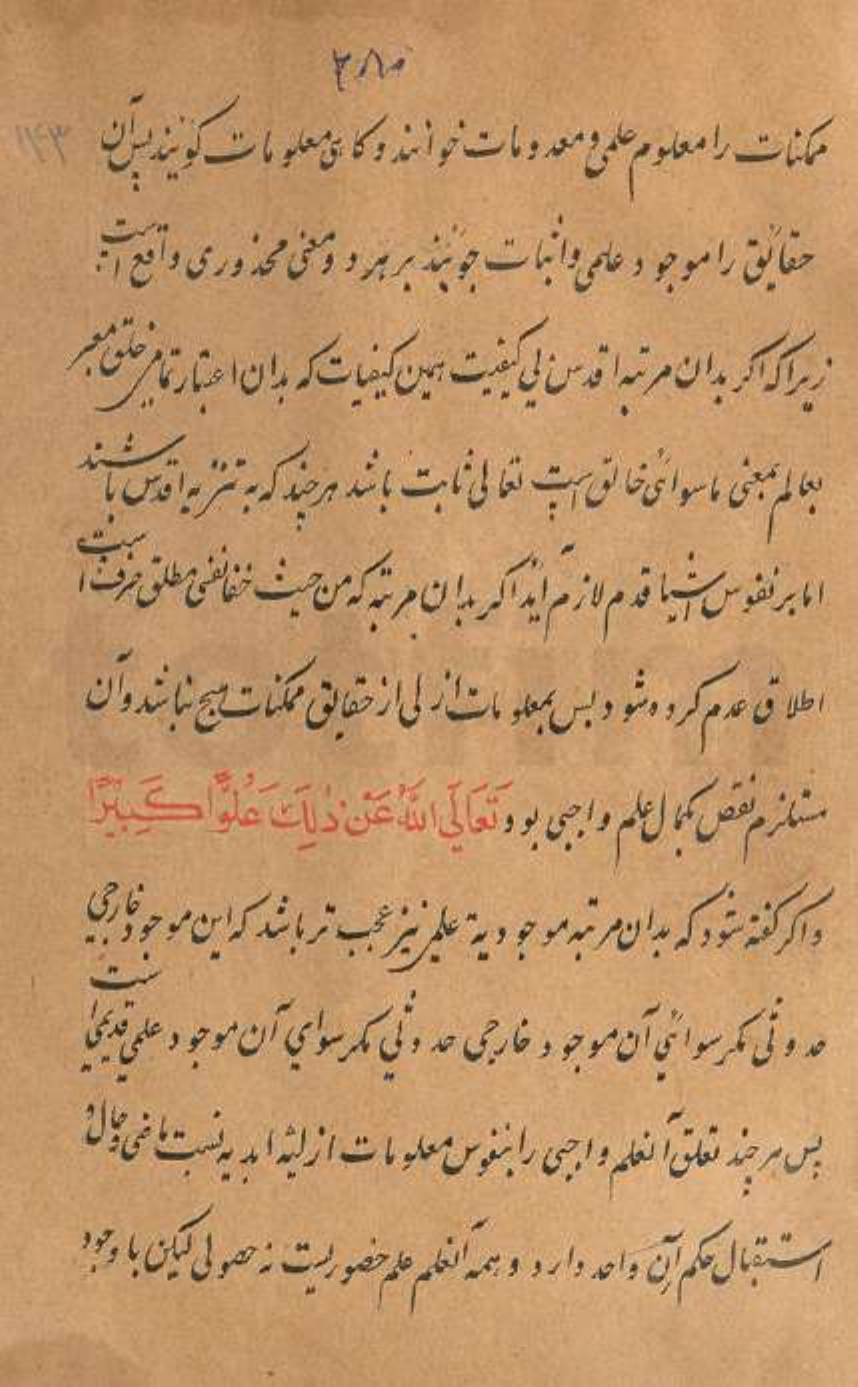 ۲۸۵
۱۴۳
ممکنات را معلوم علمی و معدومات خوانند و کاهی معلومات کویند پس آن
حقایق را موجود علمی و اثبات جویند بر هر دو معنی محذوری واقع است
زیرا که اکر بدان مرتبه اقدس لی کیفیت همین کیفیات که بدان اعتبار تمامی خلق معبر
بعالم بمعنی ماسوائی خالق است تعالی ثابت باشد هر چند که به تنزیه اقدس باشند
اما بر نفوس اشیا قدم لازم آید اکر بدان مرتبه که من حیث خفا نفی مطلق صرف است
اطلاق عدم کرده شود پس بمعلومات ازلی از حقایق ممکنات هیچ نباشد و آن
مستلزم نقص بکمال علم واجبی بود تَعَالَی اللهُ عَنْ ذٰلِكَ عُلُوًّا کَبِیْرًا
و اکر کفته شود که بدان مرتبه موجودیة علمی نیز عجب تر باشد که این موجود خارجی
حدوثی مکر سوائی آن موجود خارجی حدوثی مکر سوای آن موجود علمی قدیمی است
پس هر چند تعلق آنعلم واجبی را بنفوس معلومات ازلیه ابدیه نسبت ماضی و حال و
استقبال حکم آن واحد دارد و همه آنعلم علم حضوریست نه حصولی لیکن با وجود